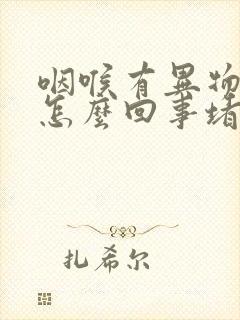 咽喉有異物
怎麼回事堵
扎希尔